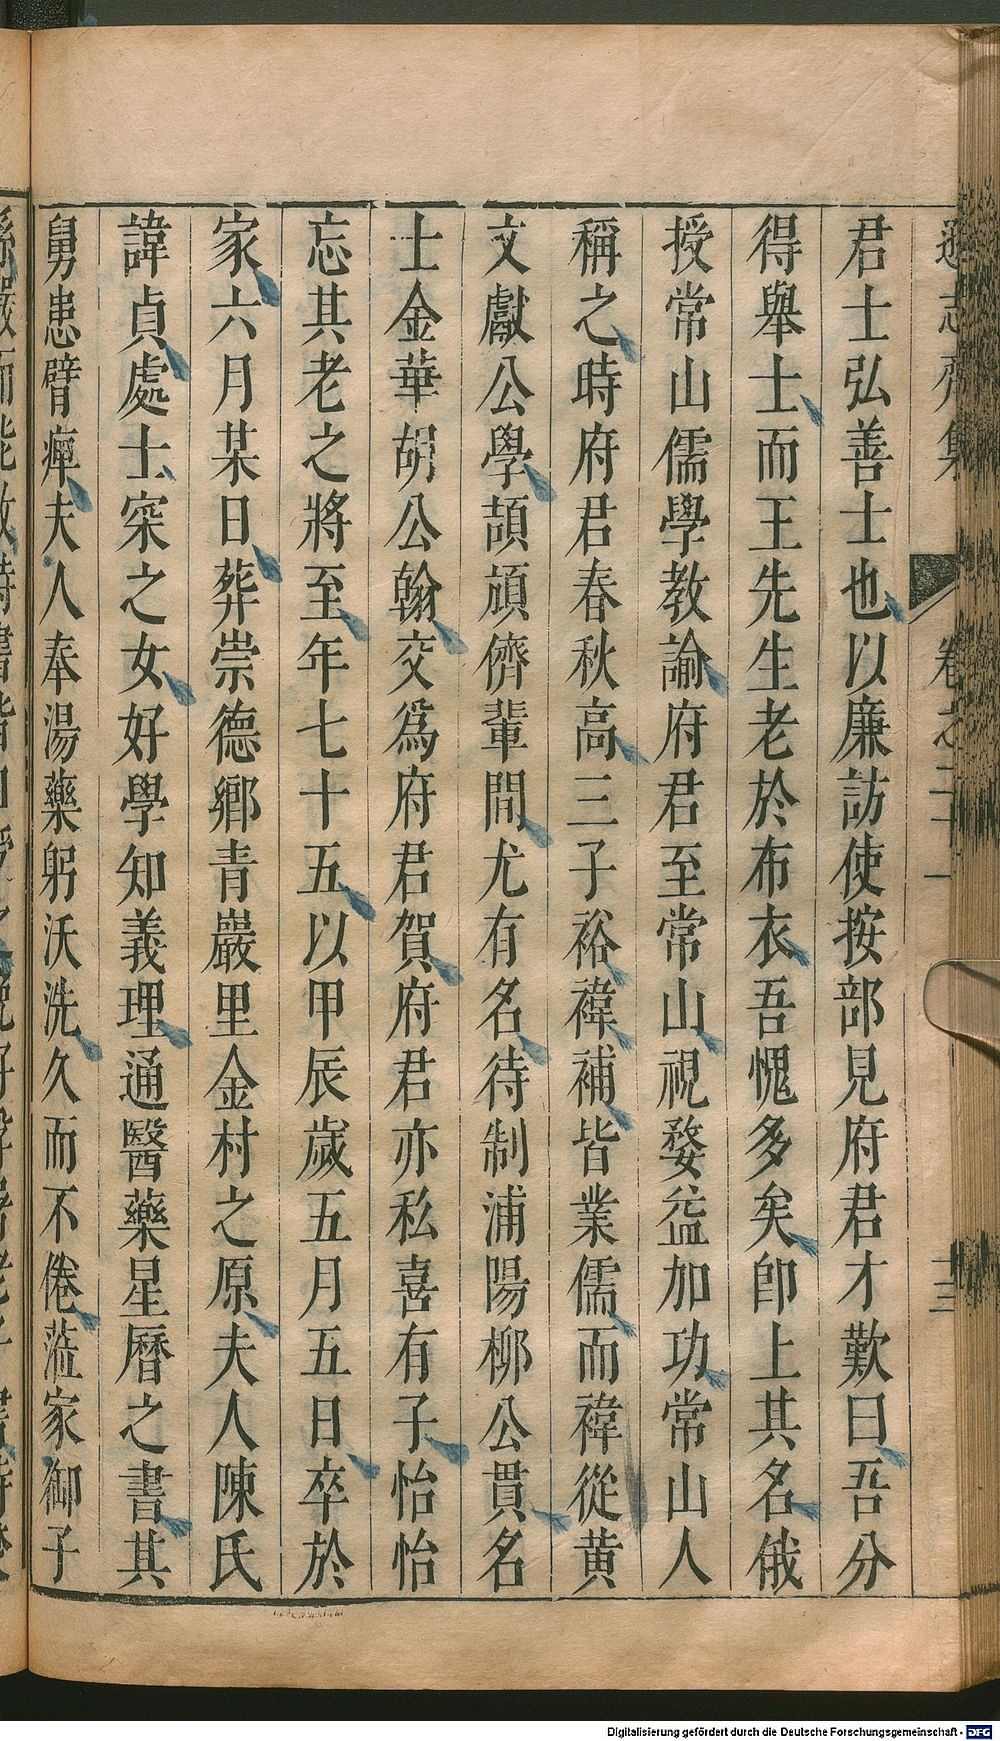 君士弘善士也以廉訪使按部見府君才歎曰吾分
得舉士而王先生老於布衣吾愧多矣卽上其名俄
授常山儒學教諭府君至常山視婺益加功常山人
稱之時府君春秋高三子裕褘補皆業儒而褘從黄
文獻公學頡頏儕輩間尤有名待制浦陽柳公貫名
士金華胡公翰交爲府君賀府君亦私喜有子怡怡
忘其老之將至年七十五以甲辰歲五月五日卒於
家六月某日葬崇德鄉青巖里金村之原夫人陳氏
諱貞處士寀之女好學知義理通醫藥星曆之書其
舅患臂痺夫人奉湯藥躬沃洗久而不倦蒞家御子
志齋集
卷之二十一
十三
Digitalisierung gefördert durch die Deutsche Forschungsgemeinschaft - DFG